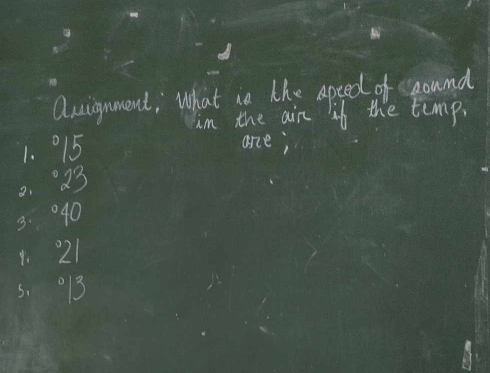 Assignment: What is the speed of sound
in the air if the temp.
are;
1. °15
2. °23
3. °40
4. °21
5. °13